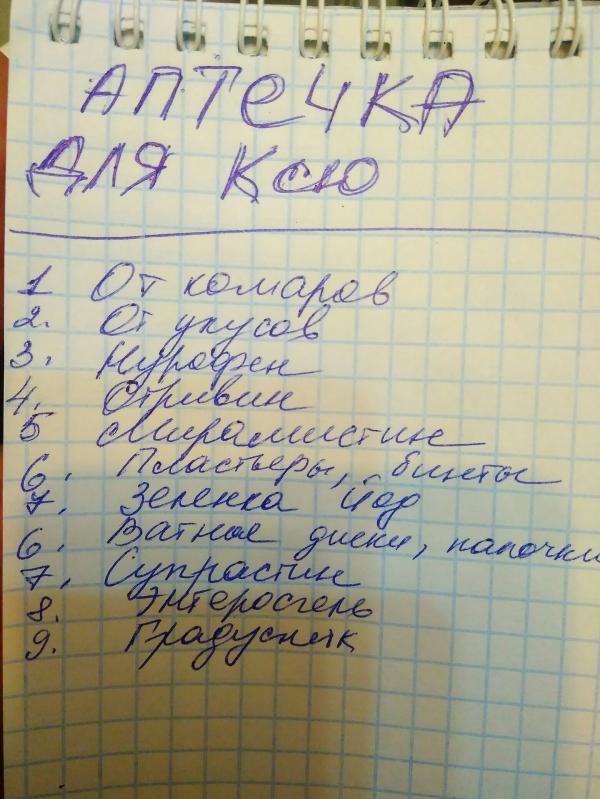 АПТЕЧКА
ДЛЯ Ксю
1 От комаров
2. От укусов
3. Нурофен
4. Отривин
5 Мирамистин
6. Пластыеры, бинты
7. Зеленка Йод
6. Ватные диски, палочки
7. Супрастин
8. Энтеросгель
9. Градусник